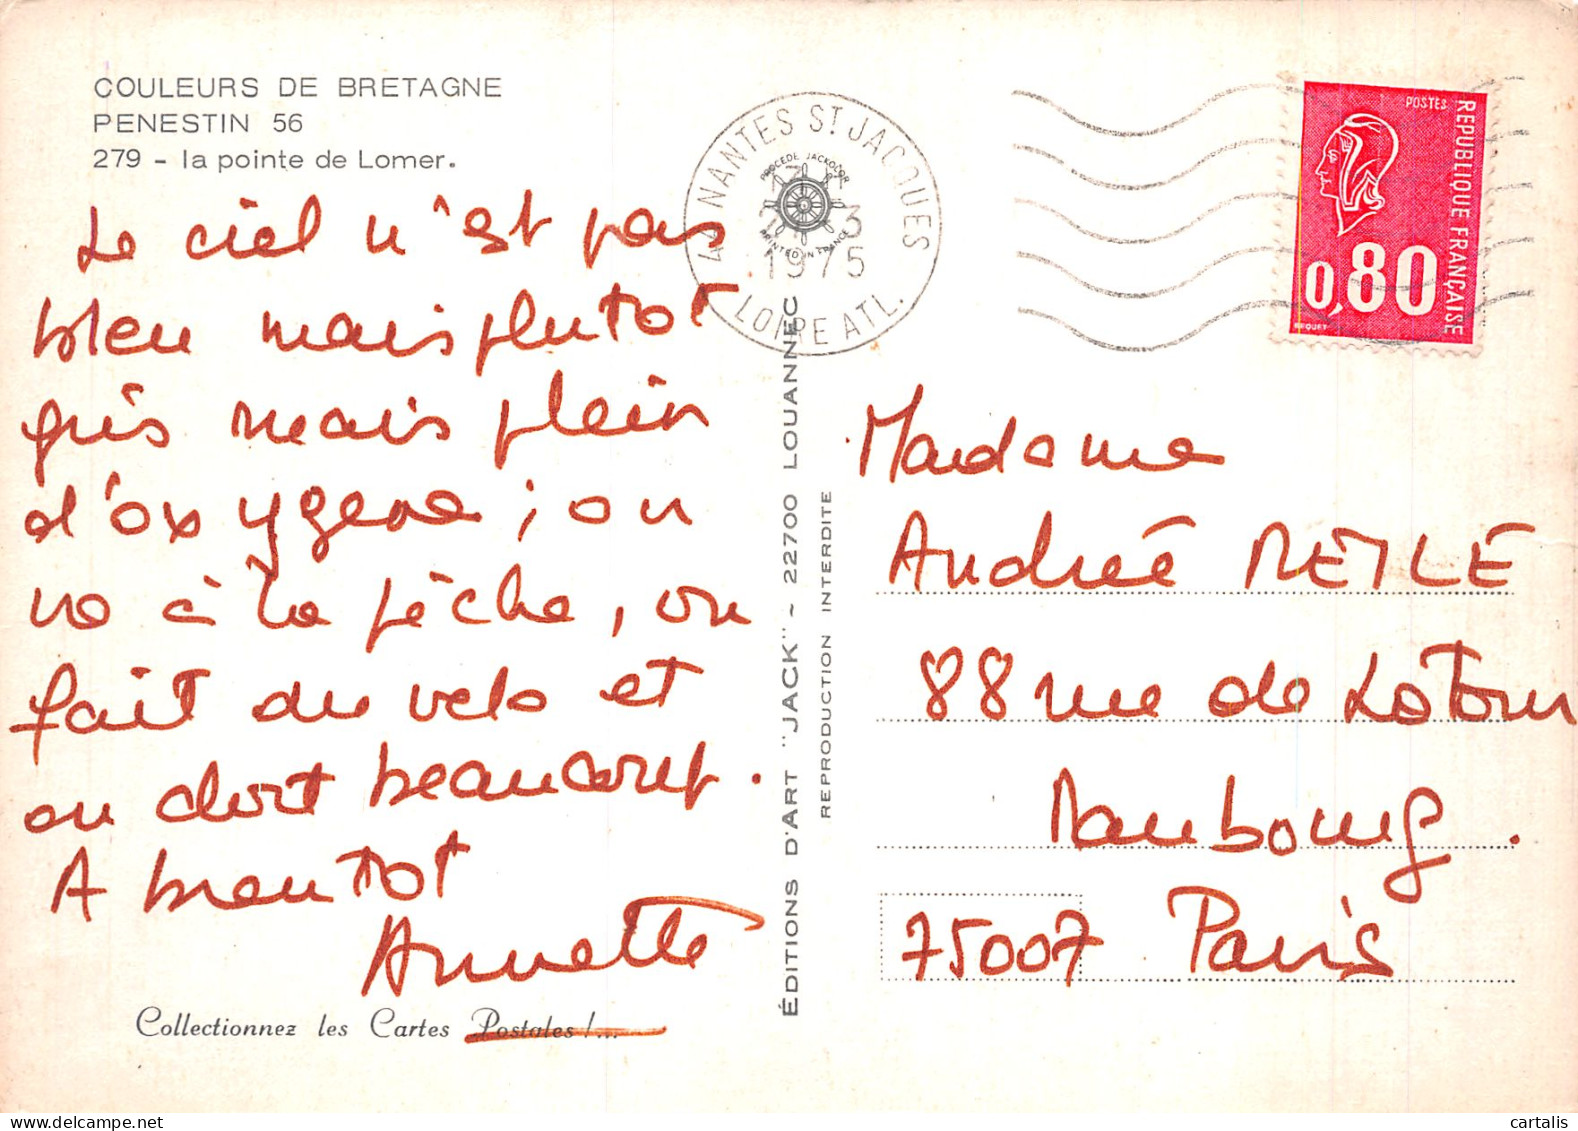 COULEURS DE BRETAGNE
PENESTIN 56
279 - la pointe de Lomer.
Le ciel n'est pas
bleu mais plutot
gris mais plein
d'oxygene ; on
va à la pêche, on
fait du velo et
on dort beaucoup.
A bientot
Annette
Collectionnez les Cartes Postales !...
44 NANTES ST JACQUES
1975
LOIRE ATL.
PROCEDE JACKOCOLOR
PRINTED IN FRANCE
ÉDITIONS D'ART "JACK" - 22700 LOUANNEC
REPRODUCTION INTERDITE
POSTES
REPUBLIQUE FRANÇAISE
0,80
BEQUET
Madame
Andrée
88 rue de LaTour
Maubourg.
75007 Paris
cartalis